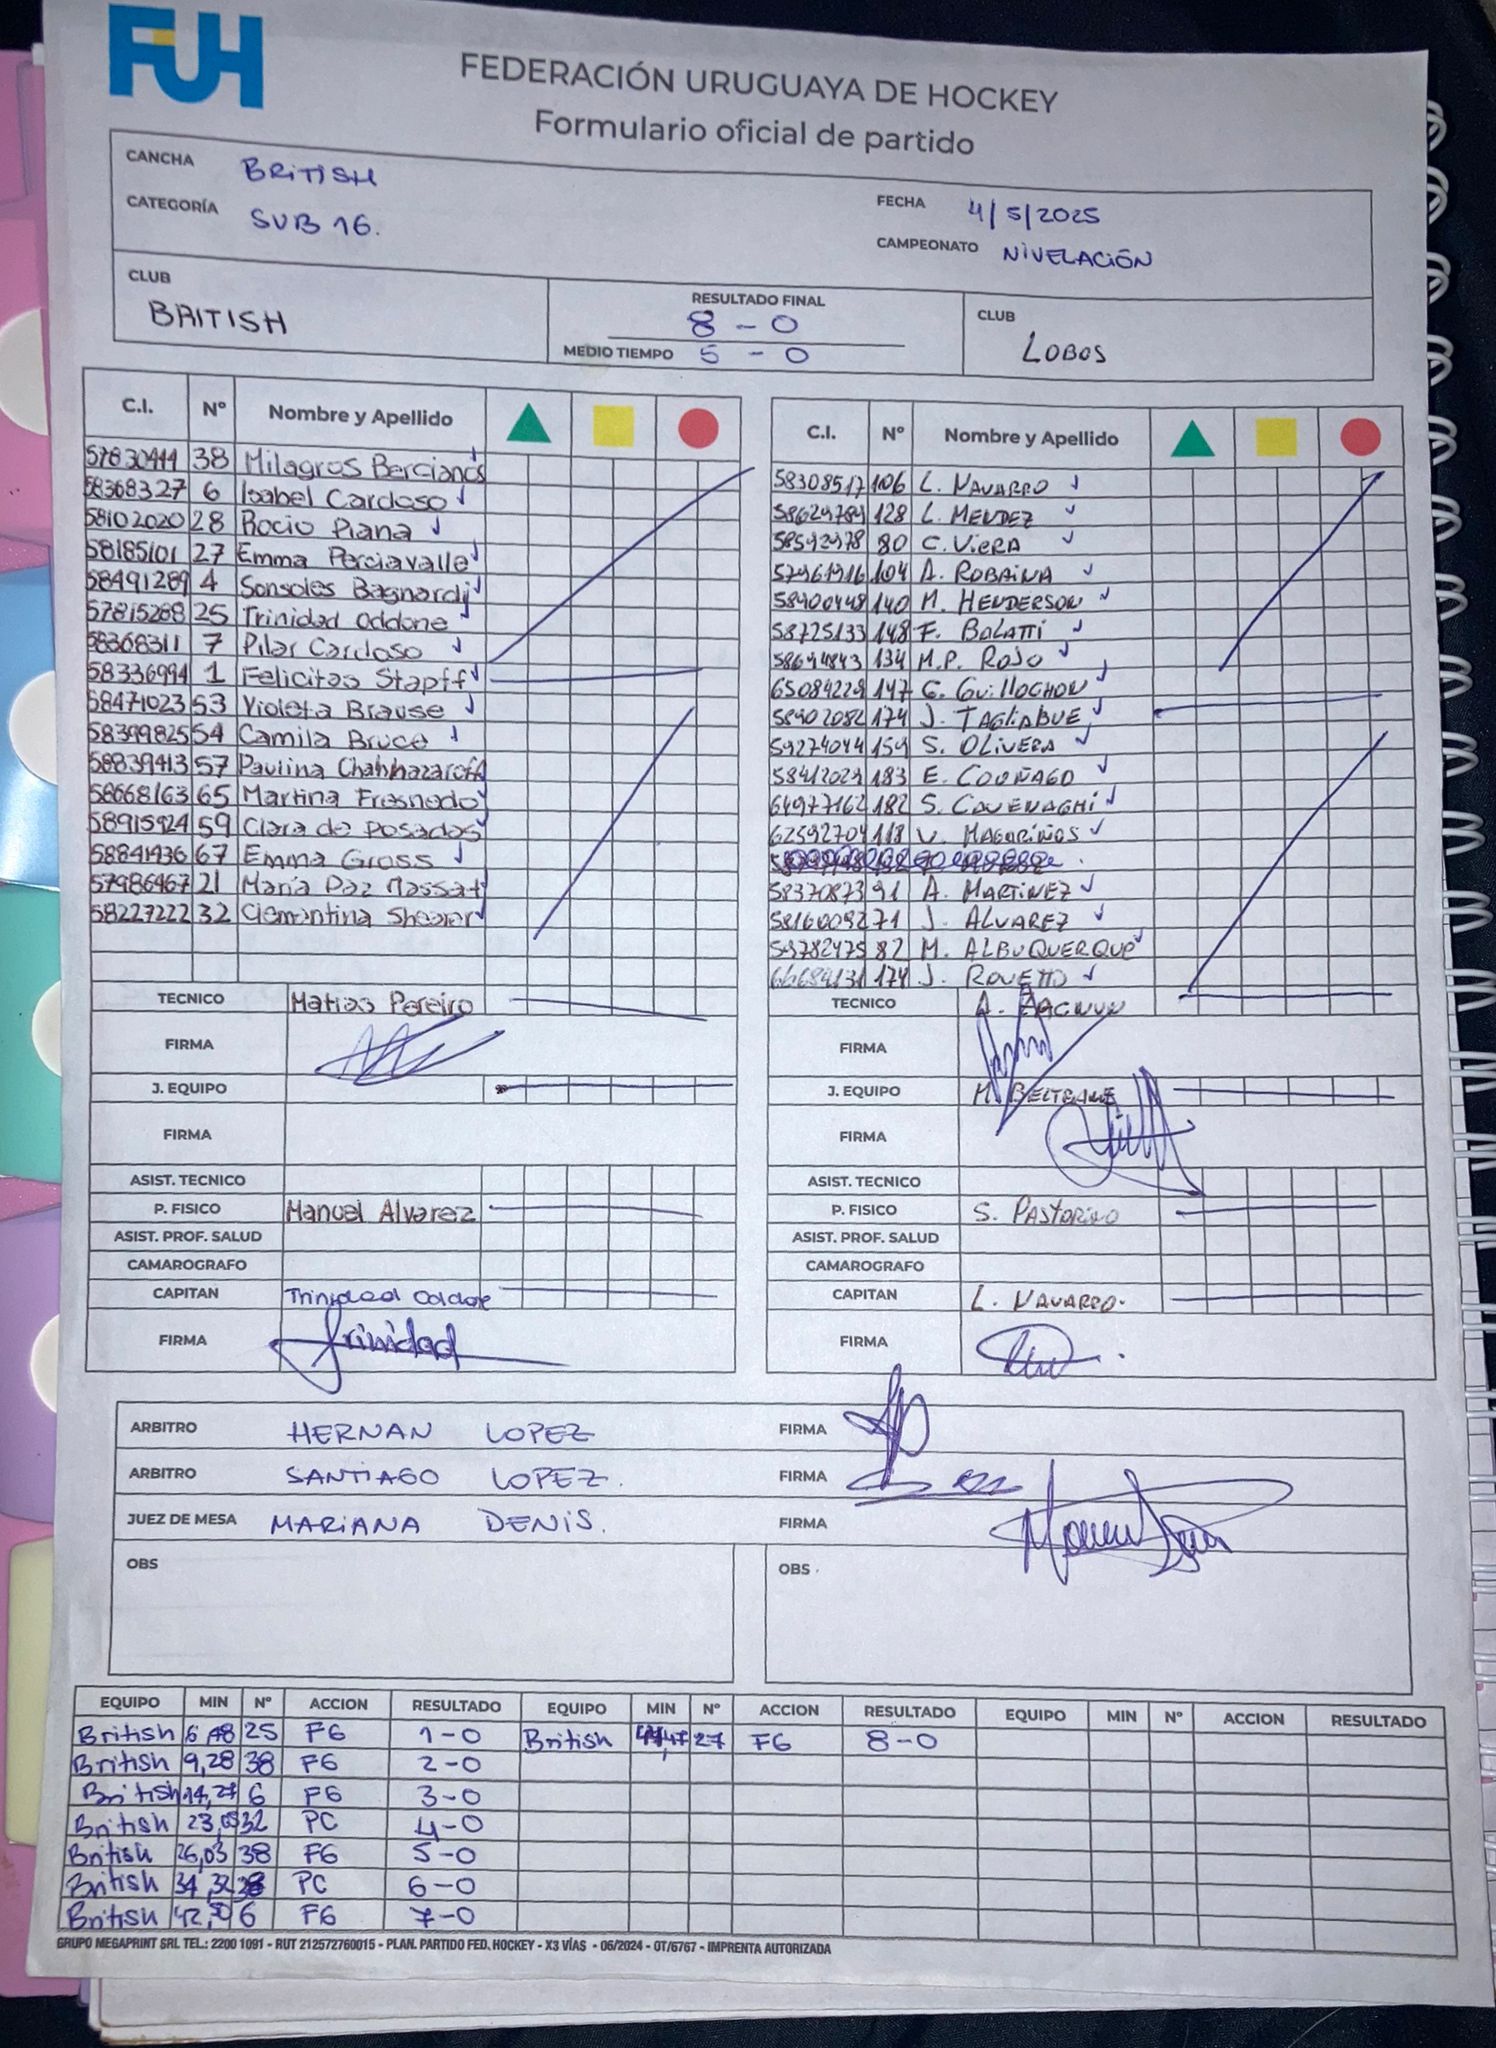 FUH
FEDERACIÓN URUGUAYA DE HOCKEY
Formulario oficial de partido
CANCHA BRITISH
CATEGORÍA SUB 16.
FECHA 4/5/2025
CAMPEONATO NIVELACIÓN
CLUB BRITISH
RESULTADO FINAL 8 - 0
MEDIO TIEMPO 5 - 0
CLUB LOBOS
C.I. Nº Nombre y Apellido
38 Milagros Bercianos
58368327 6 Isabel Cardoso
58102020 28 Rocio Piana
58185101 27 Emma Perciavalle
58491289 4 Sonsoles Bagnardi
57815288 25 Trinidad Oddone
58368311 7 Pilar Cardoso
58336994 1 Felicitas Stapff
58471023 53 Violeta Brause
58399825 54 Camila Bruce
58839413 57 Paulina
58668163 65 Martina Fresnedo
58915924 59 Clara de Posadas
58841936 67 Emma Gross
57986967 21 María Paz Massat
58227222 32 Clementina Shearer
TECNICO Matias Pereiro
FIRMA
J. EQUIPO
FIRMA
ASIST. TECNICO
P. FISICO Manuel Alvarez
ASIST. PROF. SALUD
CAMAROGRAFO
CAPITAN Trinidad Oddone
FIRMA Trinidad
C.I. Nº Nombre y Apellido
58308517 106 L. NAVARRO
58629789 128 L. MENDEZ
58592978 80 C. VIERA
57961916 104 A. ROBAINA
58400448 140 M. HENDERSON
58725133 148 F. BOLATTI
58694843 134 M.P. ROJO
65084229 147 C. GUILLOCHON
58902082 174 J. TAGLIABUE
59274044 159 S. OLIVERA
58412029 183 E. COUÑAGO
64977162 182 S. CAVENAGHI
62592704 118 V. MAGARIÑOS
58370873 91 A. MARTINEZ
58160092 71 J. ALVAREZ
82 M. ALBUQUERQUE
174 J. ROVETTO
TECNICO A.
FIRMA
J. EQUIPO M. BELTRAME
FIRMA
ASIST. TECNICO
P. FISICO S. PASTORINO
ASIST. PROF. SALUD
CAMAROGRAFO
CAPITAN L. NAVARRO.
FIRMA
ARBITRO HERNAN LOPEZ FIRMA
ARBITRO SANTIAGO LOPEZ. FIRMA
JUEZ DE MESA MARIANA DENIS. FIRMA
OBS
OBS
EQUIPO MIN Nº ACCION RESULTADO EQUIPO MIN Nº ACCION RESULTADO EQUIPO MIN Nº ACCION RESULTADO
British 6,48 25 FG 1-0 British 27 FG 8-0
British 9,28 38 FG 2-0
British 14,27 6 FG 3-0
British 23,05 32 PC 4-0
British 26,03 38 FG 5-0
British 34,32 38 PC 6-0
British 6 FG 7-0
GRUPO MEGAPRINT SRL TEL.: 2200 1091 - RUT 212572760015 - PLAN. PARTIDO FED. HOCKEY - X3 VÍAS - 06/2024 - OT/6767 - IMPRENTA AUTORIZADA